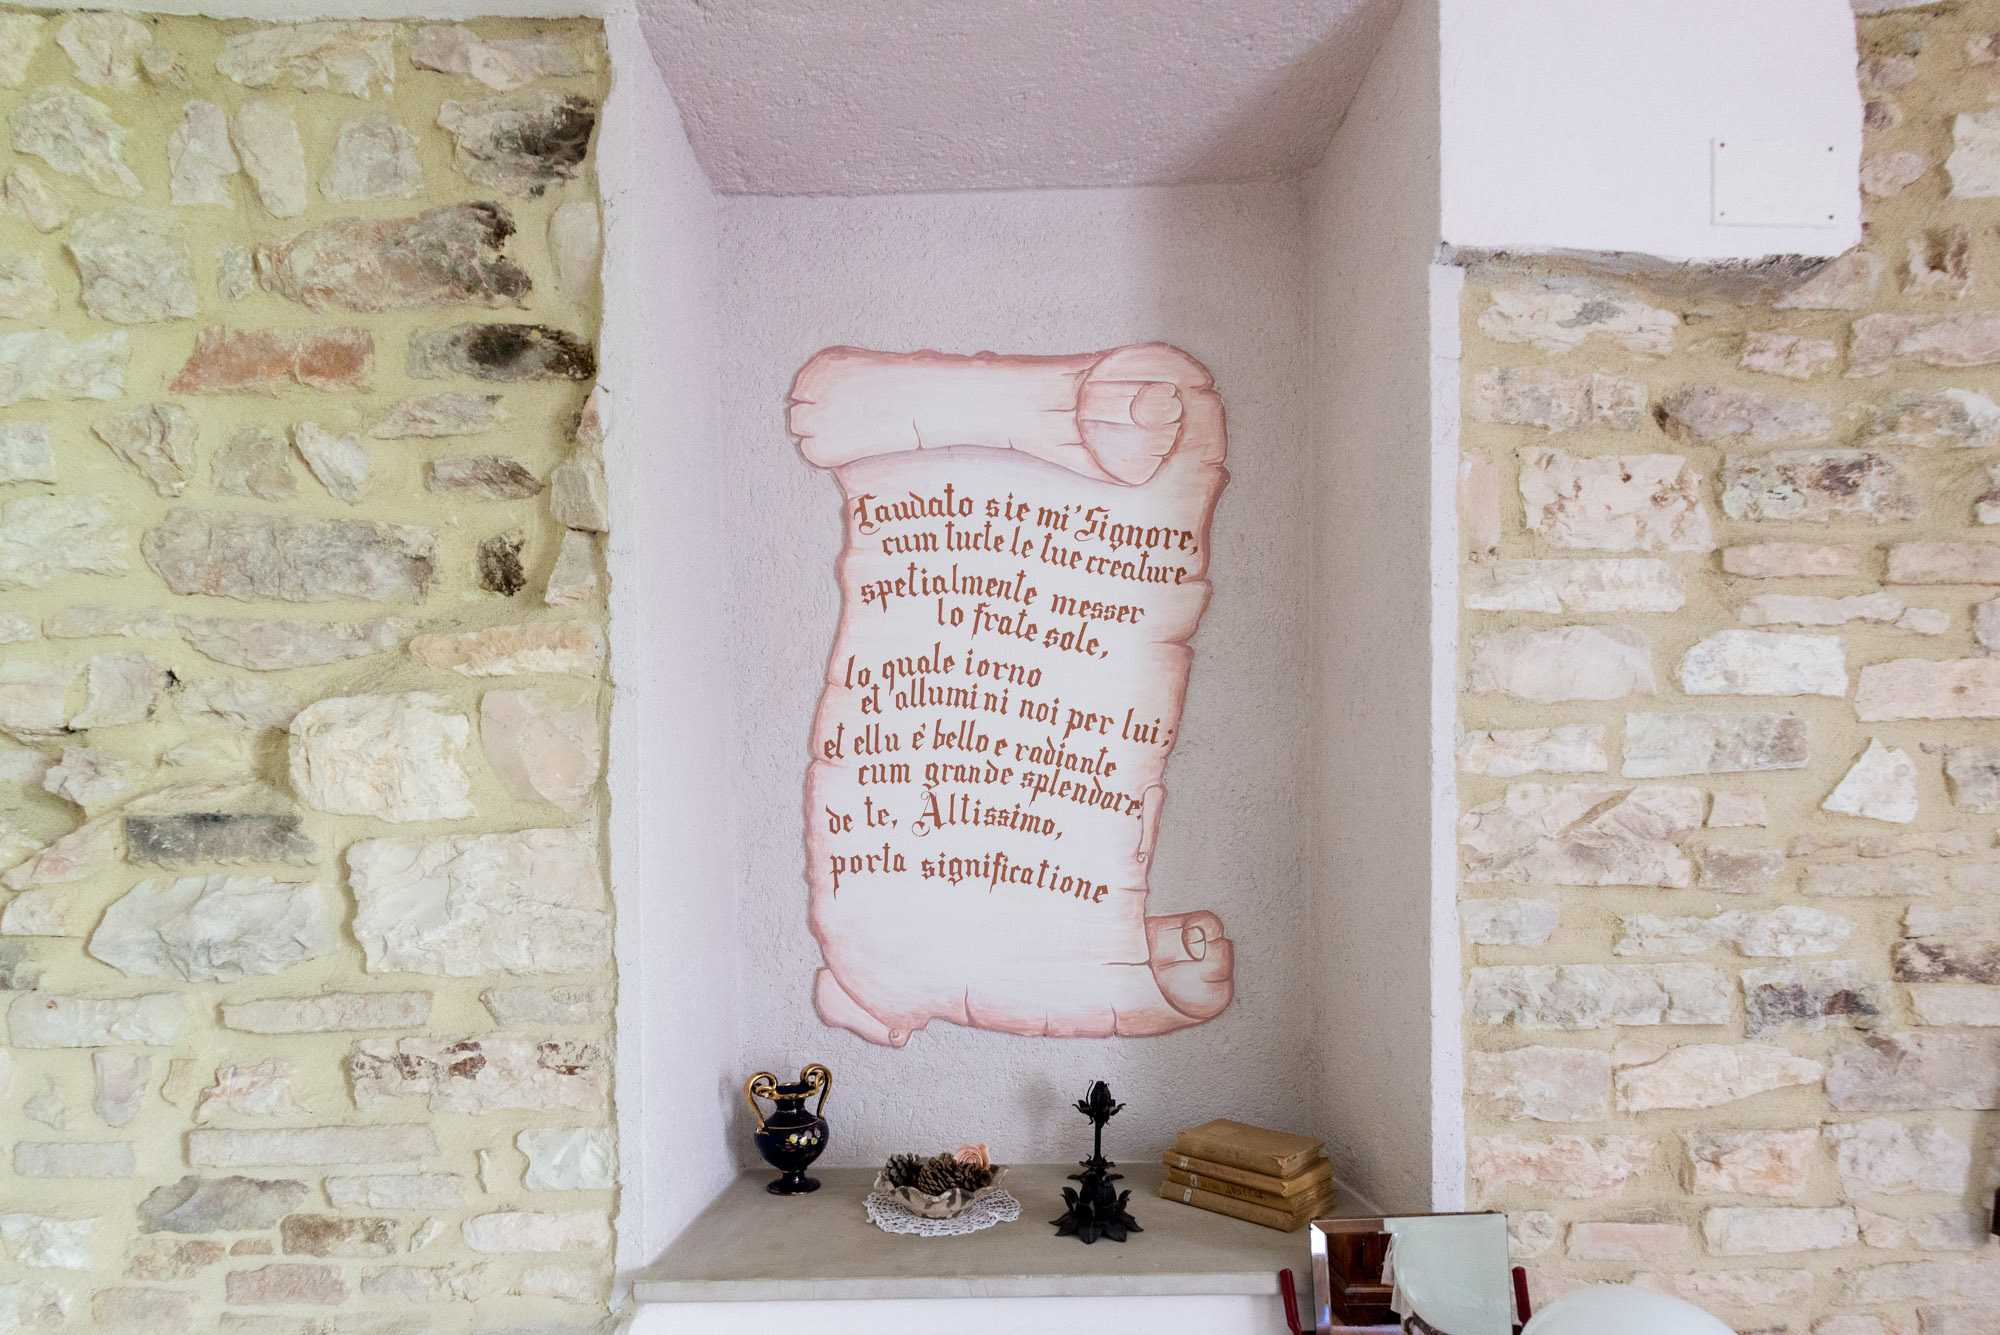 Laudato sie mi' Signore,
cum tucte le tue creature
spetialmente messer
lo frate sole,
lo quale iorno
et allumini noi per lui;
et ellu è bello e radiante
cum grande splendore:
de te, Altissimo,
porta significatione